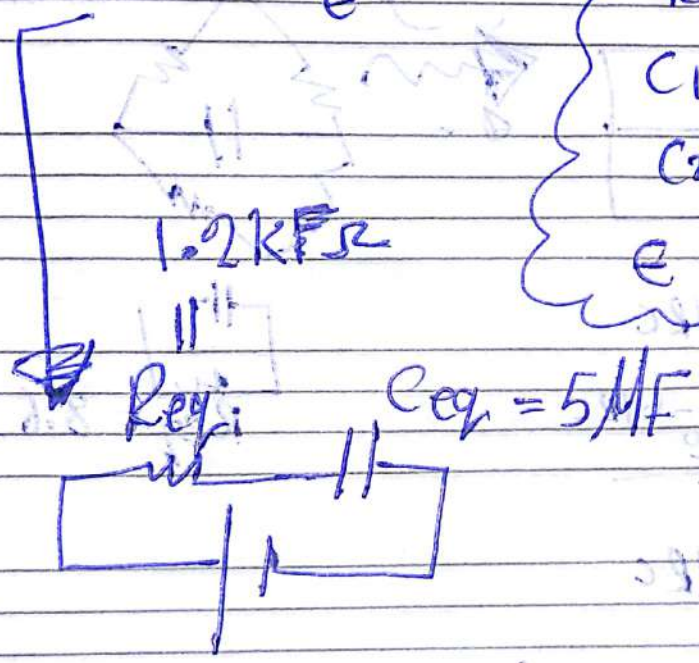 e
C1
C2
1.2kΩ
E
||
Req: Ceq = 5μF